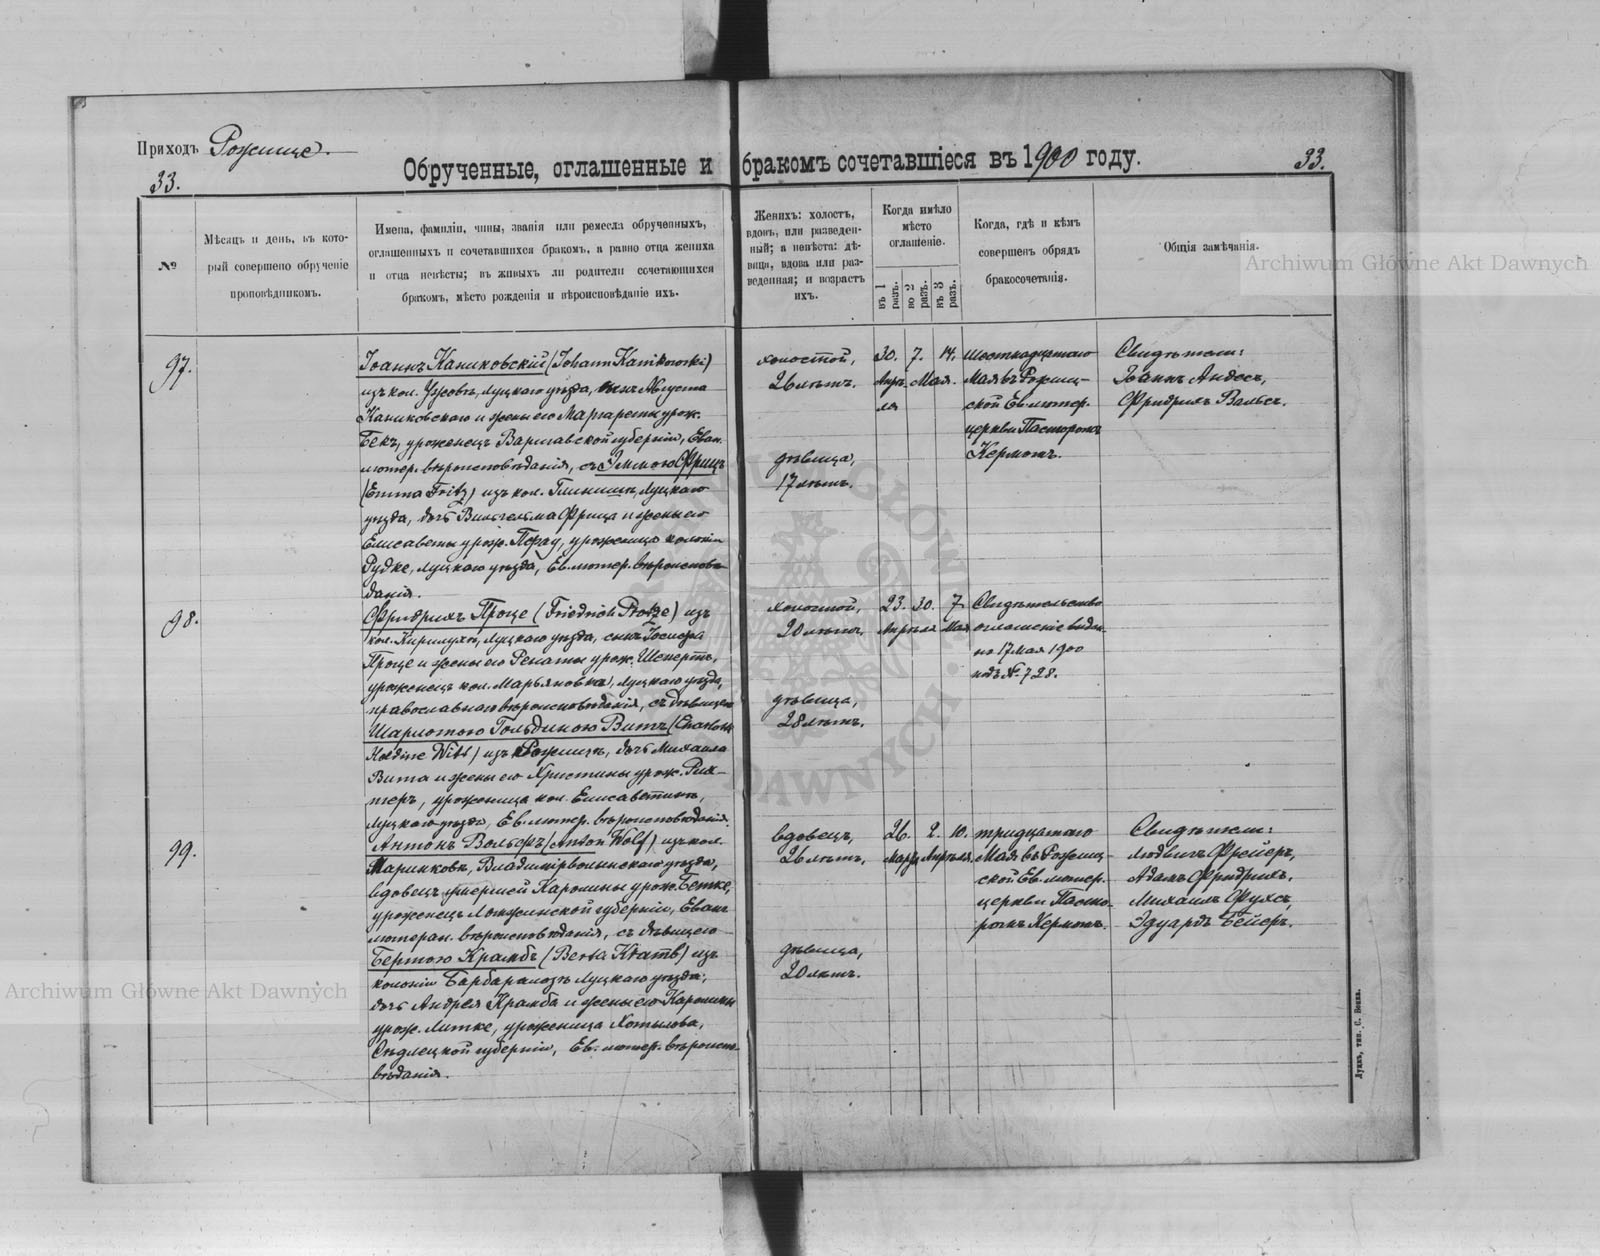 Приходъ Рожище.
33.
Обрученные, оглашенные и бракомъ сочетавшіеся въ 1900 году.
33.
№
Мѣсяцъ и день, въ кото-
рый совершено обрученіе
проповѣдникомъ.
Имена, фамиліи, чины, званія или ремесла обрученныхъ,
оглашенныхъ и сочетавшихся бракомъ, а равно отца жениха
и отца невѣсты; въ живыхъ ли родители сочетающихся
бракомъ, мѣсто рожденія и вѣроисповѣданіе ихъ.
Женихъ: холостъ,
вдовъ, или разведен-
ный; а невѣста: дѣ-
вица, вдова или раз-
веденная; и возрастъ
ихъ.
Когда имѣло
мѣсто
оглашеніе.
въ 1 разъ.
во 2 разъ.
въ 3 разъ.
Когда, гдѣ и кѣмъ
совершенъ обрядъ
бракосочетанія.
Общія замѣчанія.
97.
Іоаннъ Каниковскій (Johann Kanikowski)
изъ кол. Ужовъ, Луцкаго уѣзда, сынъ Августа
Каниковскаго и жены его Маргареты урож.
Бекъ, уроженецъ Варшавской губерніи, Еван.
лютер. вѣроисповѣданія, съ Эммою Фрицъ
(Emma Fritz) изъ кол. Луцкаго
уѣзда, дочь Вильгельма Фрица и жены его
Елисаветы урож. уроженица колоніи
Рудке, Луцкаго уѣзда, Ев. лютер. вѣроисповѣ-
данія.
холостой,
26 лѣтъ.
дѣвица,
17 лѣтъ.
30. 7. 14.
Апрѣ- Мая.
ля
Шестнадцатаго
Мая въ Рожищ-
ской Ев. лютер.
церкви Пасторомъ
Кермомъ.
Свидѣтели:
Іоаннъ Андесъ,
Фридрихъ Вальсъ.
98.
Фридрихъ Проце (Friedrich Protze) изъ
кол. Кирилухи, Луцкаго уѣзда, сынъ Іосифа
Проце и жены его Ренаты урож. Шепертъ,
уроженецъ кол. Марьяновка, Луцкаго уѣзда,
православнаго вѣроисповѣданія, съ дѣвицею
Шарлотою Гольдиною Витъ (Charlotte
Holdine Witt) изъ Рожищъ, дочь Михаила
Вита и жены его Христины урож. Рих-
теръ, уроженица кол. Елисаветинъ,
Луцкаго уѣзда, Ев. лютер. вѣроисповѣданія.
холостой,
20 лѣтъ.
дѣвица,
28 лѣтъ.
23. 30. 7.
Апрѣля Мая
Свидѣтельство
оглашеніе выдан-
но 17 Мая 1900
подъ № 728.
99.
Антонъ Вольфъ (Anton Wolf) изъ кол.
Маринковъ, Владимірволынскаго уѣзда,
вдовецъ умершей Каролины урож. Бетке,
уроженецъ Ломжинской губерніи, Еванг.
лютеран. вѣроисповѣданія, съ дѣвицею
Бертою Крамбъ (Berta Kramb) изъ
колоніи Луцкаго уѣзда,
дочь Андрея Крамба и жены его Каролины
урож. Литке, уроженица Хотылова,
Сѣдлецкой губерніи, Ев. лютер. вѣроиспо-
вѣданія.
вдовецъ,
26 лѣтъ,
дѣвица,
20 лѣтъ.
26. 2. 10.
Марта Апрѣля.
тридцатаго
Мая въ Рожищ-
ской Ев. лютер.
церкви Пасто-
ромъ Кермомъ.
Свидѣтели:
Людвигъ Фрейеръ,
Адамъ Фридрихъ.
Михаилъ Фуксъ,
Эдуардъ Бейеръ.
Луцкъ, тип. С. Бонка.
Archiwum Główne Akt Dawnych
Archiwum Główne Akt Dawnych